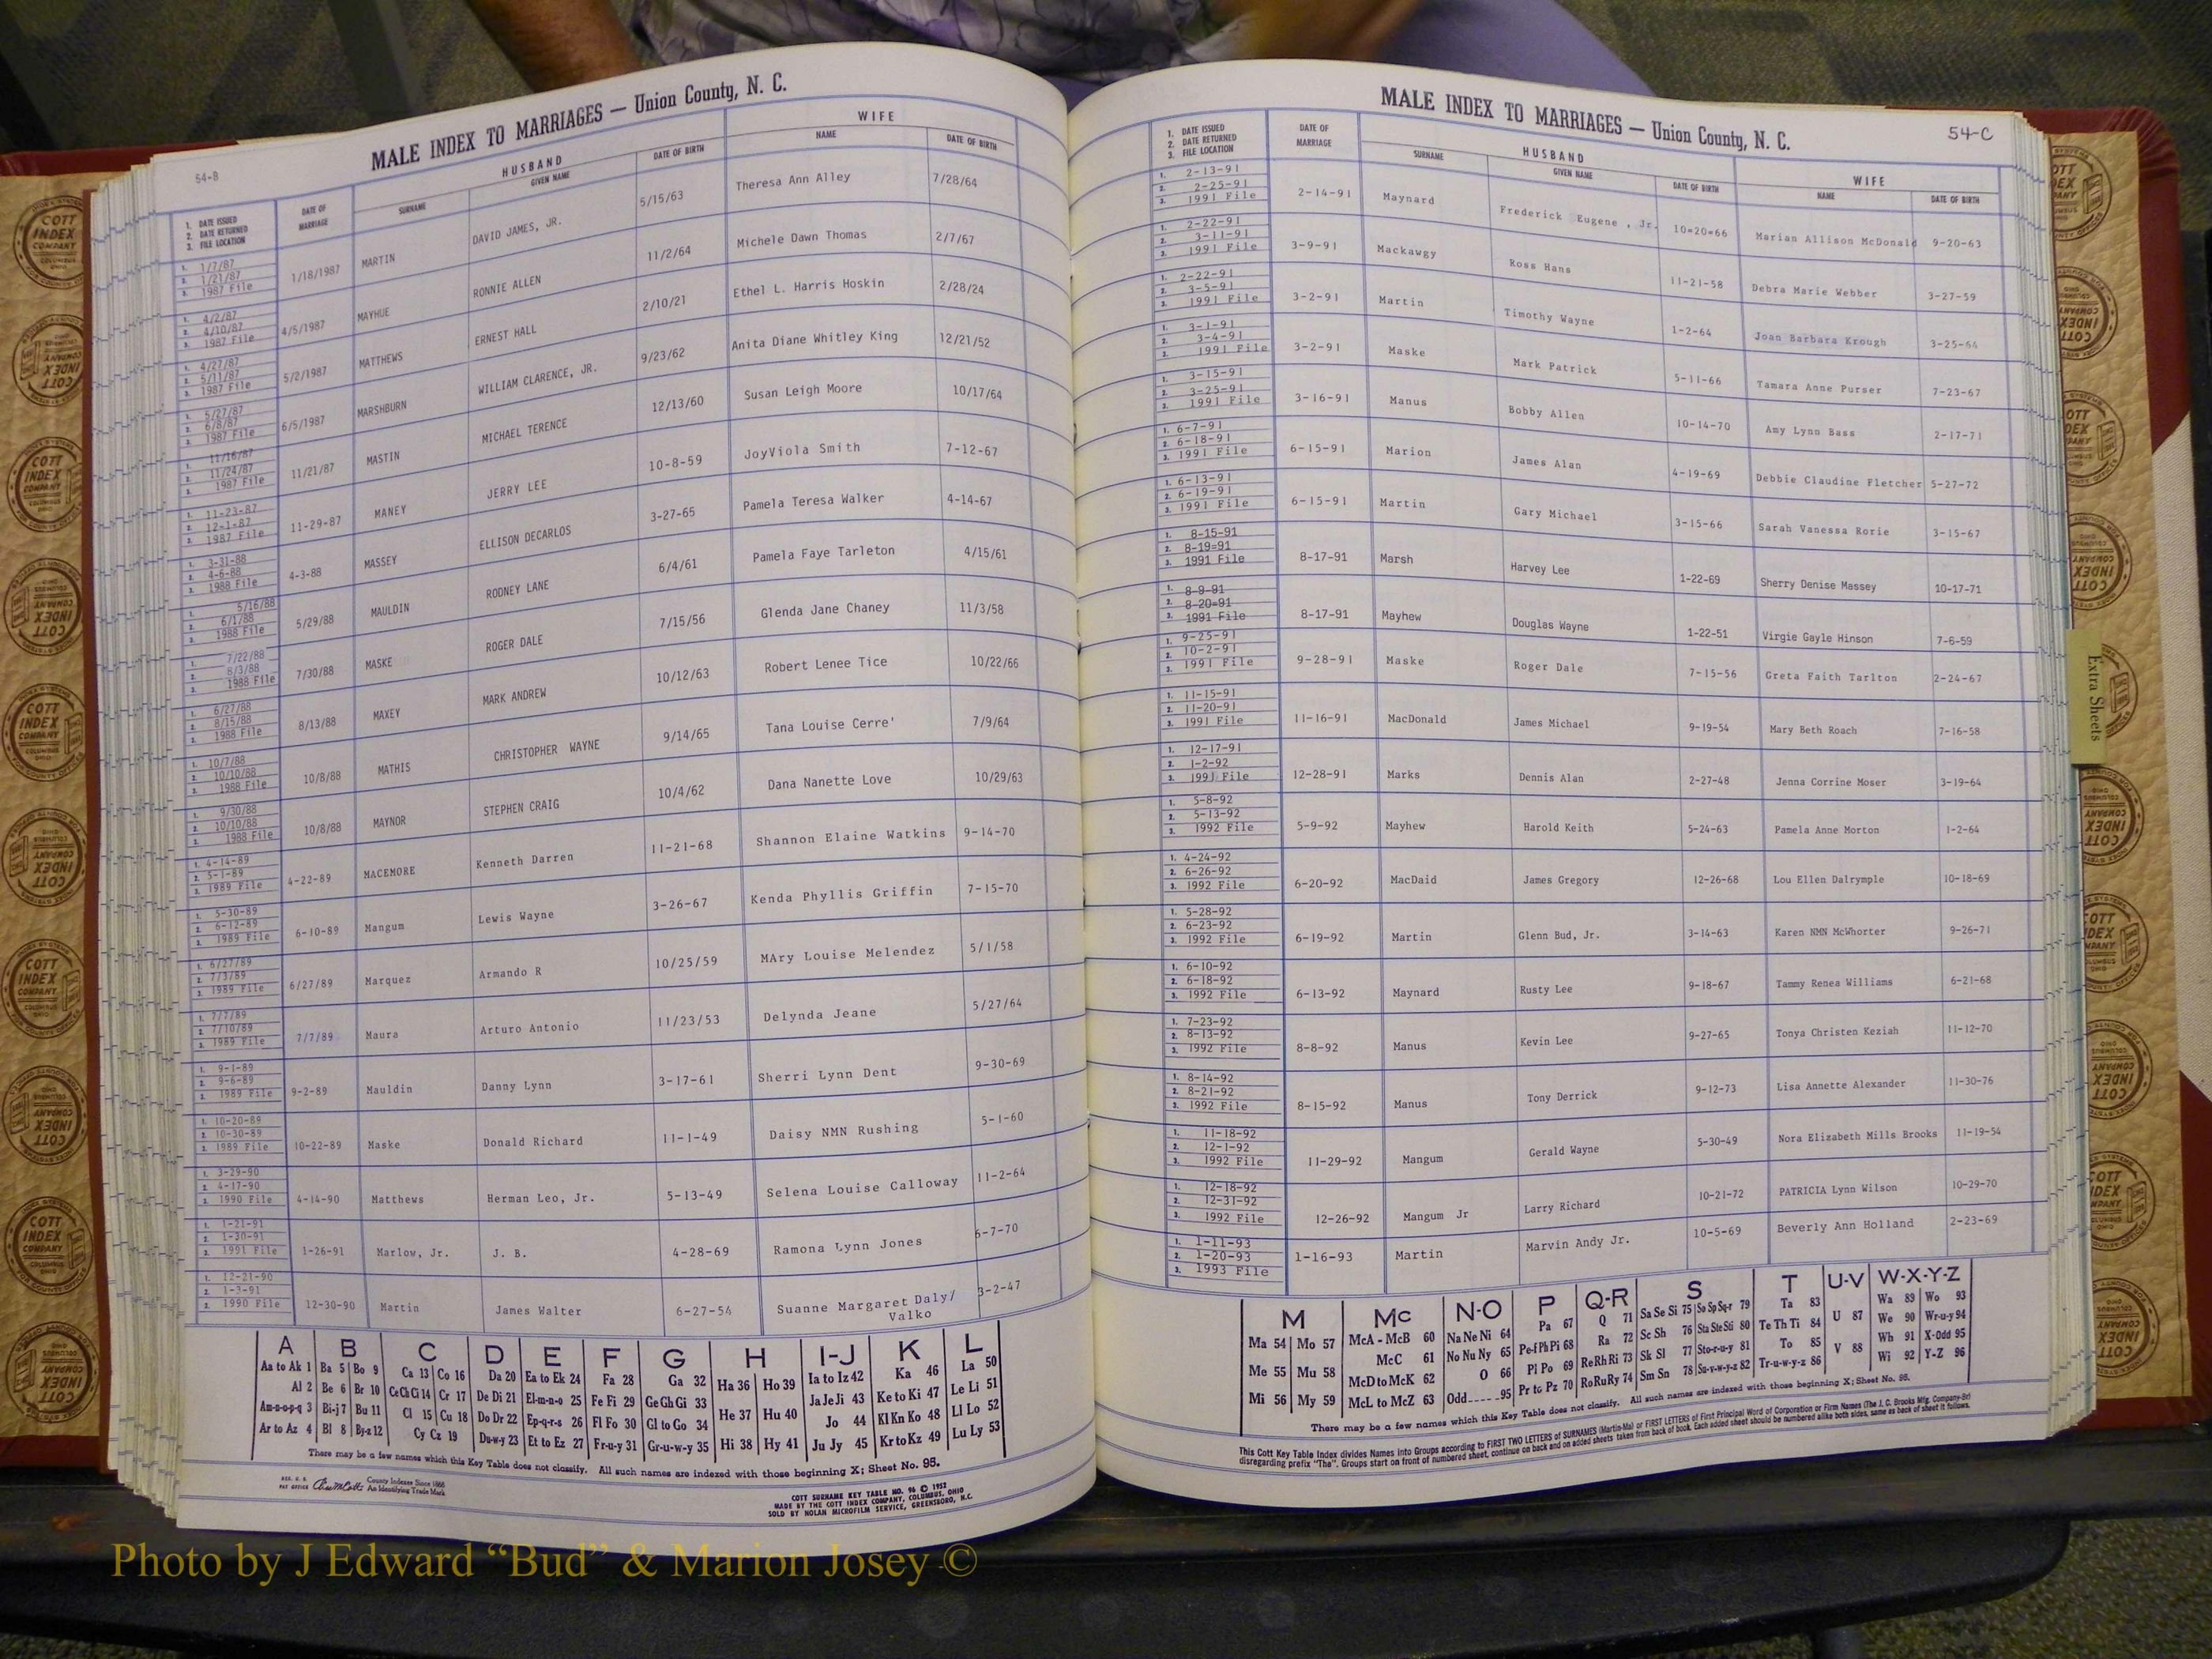 54-B
MALE INDEX TO MARRIAGES — Union County, N. C.
HUSBAND WIFE
1. DATE ISSUED 2. DATE RETURNED 3. FILE LOCATION DATE OF MARRIAGE SURNAME GIVEN NAME DATE OF BIRTH NAME DATE OF BIRTH
1. 1/7/87 2. 1/21/87 3. 1987 File 1/18/1987 MARTIN DAVID JAMES, JR. 5/15/63 Theresa Ann Alley 7/28/64
1. 4/2/87 2. 4/10/87 3. 1987 File 4/5/1987 MAYHUE RONNIE ALLEN 11/2/64 Michele Dawn Thomas 2/7/67
1. 4/27/87 2. 5/11/87 3. 1987 File 5/2/1987 MATTHEWS ERNEST HALL 2/10/21 Ethel L. Harris Hoskin 2/28/24
1. 5/27/87 2. 6/8/87 3. 1987 File 6/5/1987 MARSHBURN WILLIAM CLARENCE, JR. 9/23/62 Anita Diane Whitley King 12/21/52
11/16/87 11/24/87 1987 File 11/21/87 MASTIN MICHAEL TERENCE 12/13/60 Susan Leigh Moore 10/17/64
1. 11-23-87 2. 12-1-87 3. 1987 File 11-29-87 MANEY JERRY LEE 10-8-59 JoyViola Smith 7-12-67
1. 3-31-88 2. 4-6-88 3. 1988 File 4-3-88 MASSEY ELLISON DECARLOS 3-27-65 Pamela Teresa Walker 4-14-67
1. 5/16/88 2. 6/1/88 3. 1988 File 5/29/88 MAULDIN RODNEY LANE 6/4/61 Pamela Faye Tarleton 4/15/61
1. 7/22/88 2. 8/3/88 3. 1988 File 7/30/88 MASKE ROGER DALE 7/15/56 Glenda Jane Chaney 11/3/58
1. 6/27/88 2. 8/15/88 3. 1988 File 8/13/88 MAXEY MARK ANDREW 10/12/63 Robert Lenee Tice 10/22/66
1. 10/7/88 2. 10/10/88 3. 1988 File 10/8/88 MATHIS CHRISTOPHER WAYNE 9/14/65 Tana Louise Cerre' 7/9/64
1. 9/30/88 2. 10/10/88 3. 1988 File 10/8/88 MAYNOR STEPHEN CRAIG 10/4/62 Dana Nanette Love 10/29/63
1. 4-14-89 2. 5-1-89 3. 1989 File 4-22-89 MACEMORE Kenneth Darren 11-21-68 Shannon Elaine Watkins 9-14-70
1. 5-30-89 2. 6-12-89 3. 1989 File 6-10-89 Mangum Lewis Wayne 3-26-67 Kenda Phyllis Griffin 7-15-70
1. 6/27/89 2. 7/3/89 3. 1989 File 6/27/89 Marquez Armando R 10/25/59 MAry Louise Melendez 5/1/58
1. 7/7/89 2. 7/10/89 3. 1989 File 7/7/89 Maura Arturo Antonio 11/23/53 Delynda Jeane 5/27/64
1. 9-1-89 2. 9-6-89 3. 1989 File 9-2-89 Mauldin Danny Lynn 3-17-61 Sherri Lynn Dent 9-30-69
1. 10-20-89 2. 10-30-89 3. 1989 File 10-22-89 Maske Donald Richard 11-1-49 Daisy NMN Rushing 5-1-60
1. 3-29-90 2. 4-17-90 3. 1990 File 4-14-90 Matthews Herman Leo, Jr. 5-13-49 Selena Louise Calloway 11-2-64
1. 1-21-91 2. 1-30-91 3. 1991 File 1-26-91 Marlow, Jr. J. B. 4-28-69 Ramona Lynn Jones 6-7-70
1. 12-21-90 2. 1-3-91 3. 1990 File 12-30-90 Martin James Walter 6-27-54 Suanne Margaret Daly/ 3-2-47
Valko
A B C D E F G H I-J K L
Aa to Ak 1 Ba 5 Bo 9 Ca 13 Co 16 Da 20 Ea to Ek 24 Fa 28 Ga 32 Ha 36 Ho 39 Ia to Iz 42 Ka 46 La 50
Al 2 Be 6 Br 10 Ce Ch Ci 14 Cr 17 De Di 21 El-m-n-o 25 Fe Fi 29 Ge Gh Gi 33 He 37 Hu 40 Ja Je Ji 43 Ke to Ki 47 Le Li 51
Am-n-o-p-q 3 Bi-j 7 Bu 11 Cl 15 Cu 18 Do Dr 22 Ep-q-r-s 26 Fl Fo 30 Gl to Go 34 Hi 38 Hy 41 Jo 44 Kl Kn Ko 48 Ll Lo 52
Ar to Az 4 Bl 8 By-z 12 Cy Cz 19 Du-w-y 23 Et to Ez 27 Fr-u-y 31 Gr-u-w-y 35 Ju Jy 45 Kr to Kz 49 Lu Ly 53
There may be a few names which this Key Table does not classify. All such names are indexed with those beginning X; Sheet No. 95.
County Indexes Since 1888
An Identifying Trade Mark
COTT SURNAME KEY TABLE NO. 96 © 1952
MADE BY THE COTT INDEX COMPANY, COLUMBUS, OHIO
SOLD BY NOLAN MICROFILM SERVICE, GREENSBORO, N.C.
MALE INDEX TO MARRIAGES — Union County, N. C.
54-C
HUSBAND WIFE
1. DATE ISSUED 2. DATE RETURNED 3. FILE LOCATION DATE OF MARRIAGE SURNAME GIVEN NAME DATE OF BIRTH NAME DATE OF BIRTH
1. 2-13-91 2. 2-25-91 3. 1991 File 2-14-91 Maynard Frederick Eugene , Jr. 10=20=66 Marian Allison McDonald 9-20-63
2-22-91 3-11-91 1991 File 3-9-91 Mackawgy Ross Hans 11-21-58 Debra Marie Webber 3-27-59
1. 2-22-91 2. 3-5-91 3. 1991 File 3-2-91 Martin Timothy Wayne 1-2-64 Joan Barbara Krough 3-25-64
1. 3-1-91 2. 3-4-91 3. 1991 File 3-2-91 Maske Mark Patrick 5-11-66 Tamara Anne Purser 7-23-67
1. 3-15-91 2. 3-25-91 3. 1991 File 3-16-91 Manus Bobby Allen 10-14-70 Amy Lynn Bass 2-17-71
1. 6-7-91 2. 6-18-91 3. 1991 File 6-15-91 Marion James Alan 4-19-69 Debbie Claudine Fletcher 5-27-72
1. 6-13-91 2. 6-19-91 3. 1991 File 6-15-91 Martin Gary Michael 3-15-66 Sarah Vanessa Rorie 3-15-67
1. 8-15-91 2. 8-19=91 3. 1991 File 8-17-91 Marsh Harvey Lee 1-22-69 Sherry Denise Massey 10-17-71
1. 8-9-91 2. 8-20=91 3. 1991 File 8-17-91 Mayhew Douglas Wayne 1-22-51 Virgie Gayle Hinson 7-6-59
1. 9-25-91 2. 10-2-91 3. 1991 File 9-28-91 Maske Roger Dale 7-15-56 Greta Faith Tarlton 2-24-67
1. 11-15-91 2. 11-20-91 3. 1991 File 11-16-91 MacDonald James Michael 9-19-54 Mary Beth Roach 7-16-58
1. 12-17-91 2. 1-2-92 3. 1991 File 12-28-91 Marks Dennis Alan 2-27-48 Jenna Corrine Moser 3-19-64
1. 5-8-92 2. 5-13-92 3. 1992 File 5-9-92 Mayhew Harold Keith 5-24-63 Pamela Anne Morton 1-2-64
1. 4-24-92 2. 6-26-92 3. 1992 File 6-20-92 MacDaid James Gregory 12-26-68 Lou Ellen Dalrymple 10-18-69
1. 5-28-92 2. 6-23-92 3. 1992 File 6-19-92 Martin Glenn Bud, Jr. 3-14-63 Karen NMN McWhorter 9-26-71
1. 6-10-92 2. 6-18-92 3. 1992 File 6-13-92 Maynard Rusty Lee 9-18-67 Tammy Renea Williams 6-21-68
1. 7-23-92 2. 8-13-92 3. 1992 File 8-8-92 Manus Kevin Lee 9-27-65 Tonya Christen Keziah 11-12-70
1. 8-14-92 2. 8-21-92 3. 1992 File 8-15-92 Manus Tony Derrick 9-12-73 Lisa Annette Alexander 11-30-76
1. 11-18-92 2. 12-1-92 3. 1992 File 11-29-92 Mangum Gerald Wayne 5-30-49 Nora Elizabeth Mills Brooks 11-19-54
1. 12-18-92 2. 12-31-92 3. 1992 File 12-26-92 Mangum Jr Larry Richard 10-21-72 PATRICIA Lynn Wilson 10-29-70
1. 1-11-93 2. 1-20-93 3. 1993 File 1-16-93 Martin Marvin Andy Jr. 10-5-69 Beverly Ann Holland 2-23-69
M Mc N-O P Q-R S T U-V W-X-Y-Z
Ma 54 Mo 57 McA - McB 60 Na Ne Ni 64 Pa 67 Q 71 Sa Se Si 75 So Sp Sq-r 79 Ta 83 U 87 Wa 89 Wo 93
Me 55 Mu 58 McC 61 No Nu Ny 65 Pe-f Ph Pi 68 Ra 72 Sc Sh 76 Sta Ste Sti 80 Te Th Ti 84 V 88 We 90 Wr-u-y 94
Mi 56 My 59 McD to McK 62 O 66 Pl Po 69 Re Rh Ri 73 Sk Sl 77 Sto-r-u-y 81 To 85 Wh 91 X-Odd 95
McL to McZ 63 Odd 95 Pr to Pz 70 Ro Ru Ry 74 Sm Sn 78 Su-v-w-y-z 82 Tr-u-w-y-z 86 Wi 92 Y-Z 96
There may be a few names which this Key Table does not classify. All such names are indexed with those beginning X; Sheet No. 95.
This Cott Key Table Index divides Names into Groups according to FIRST TWO LETTERS of SURNAMES (Martin-Ma) or FIRST LETTERS of First Principal Word of Corporation or Firm Names (The J. C. Brooks Mfg. Company-Br)
disregarding prefix "The". Groups start on front of numbered sheet, continue on back and on added sheets taken from back of book. Each added sheet should be numbered alike both sides, same as back of sheet it follows.
Extra Sheets
COTT INDEX COMPANY COLUMBUS OHIO
Photo by J Edward “Bud” & Marion Josey ©